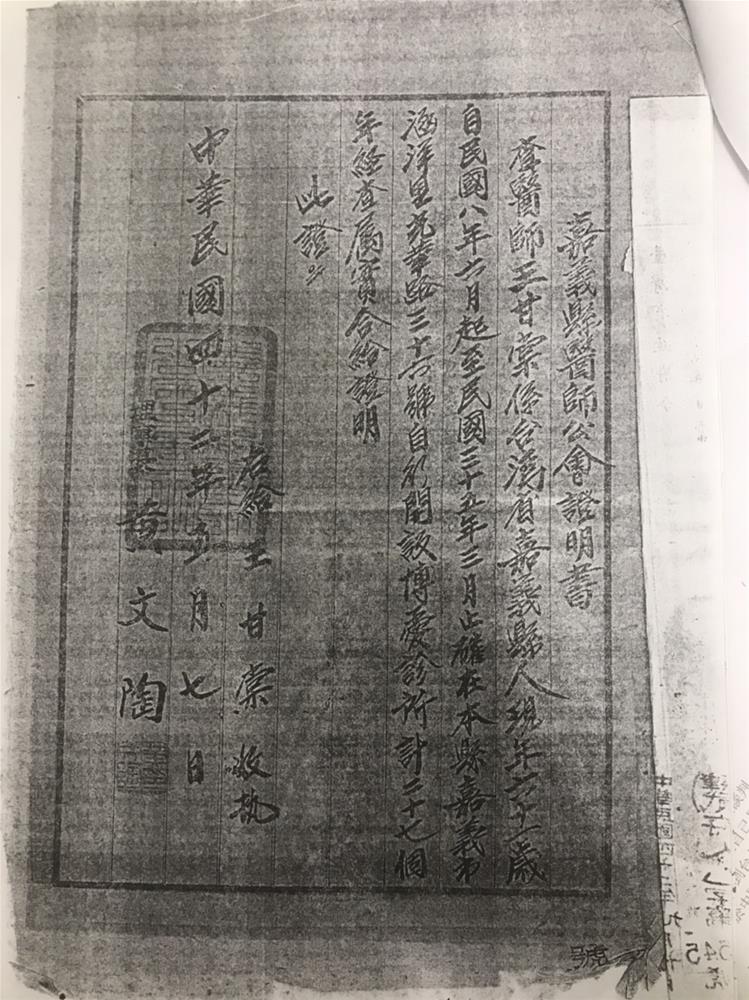 嘉義縣醫師公會證明書
查醫師王甘棠係台灣省嘉義縣人現年六十一歲
自民國八年六月起至民國三十五年三月止確在本縣嘉義市
海洋里光華路三十六號自行開設博愛診所計二十七個
年經查屬實合給證明
此證
右給王甘棠收執
中華民國四十二年五月七日
理事長 黃文陶
號